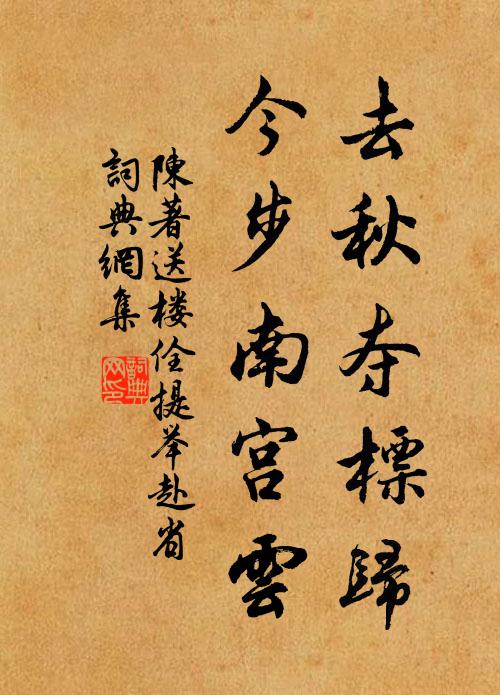 去秋夺標歸
今步南宫雲
陳著送楼佺提举赴省
詞典網集
詞典
网印